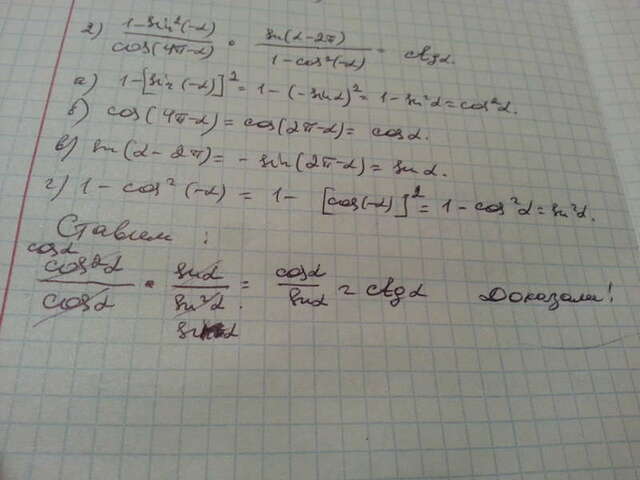 2) (1-sin²(-α))/(cos(4π-α)) · (sin(α-2π))/(1-cos²(-α)) = ctgα.
а) 1-[sin(-α)]² = 1-(-sinα)² = 1-sin²α = cos²α.
б) cos(4π-α) = cos(2π-α) = cosα.
в) sin(α-2π) = -sin(2π-α) = sinα.
г) 1-cos²(-α) = 1-[cos(-α)]² = 1-cos²α = sin²α.
Ставием :
cosα
cos²α/cosα · sinα/sin²α = cosα/sinα = ctgα Доказали!
sinα